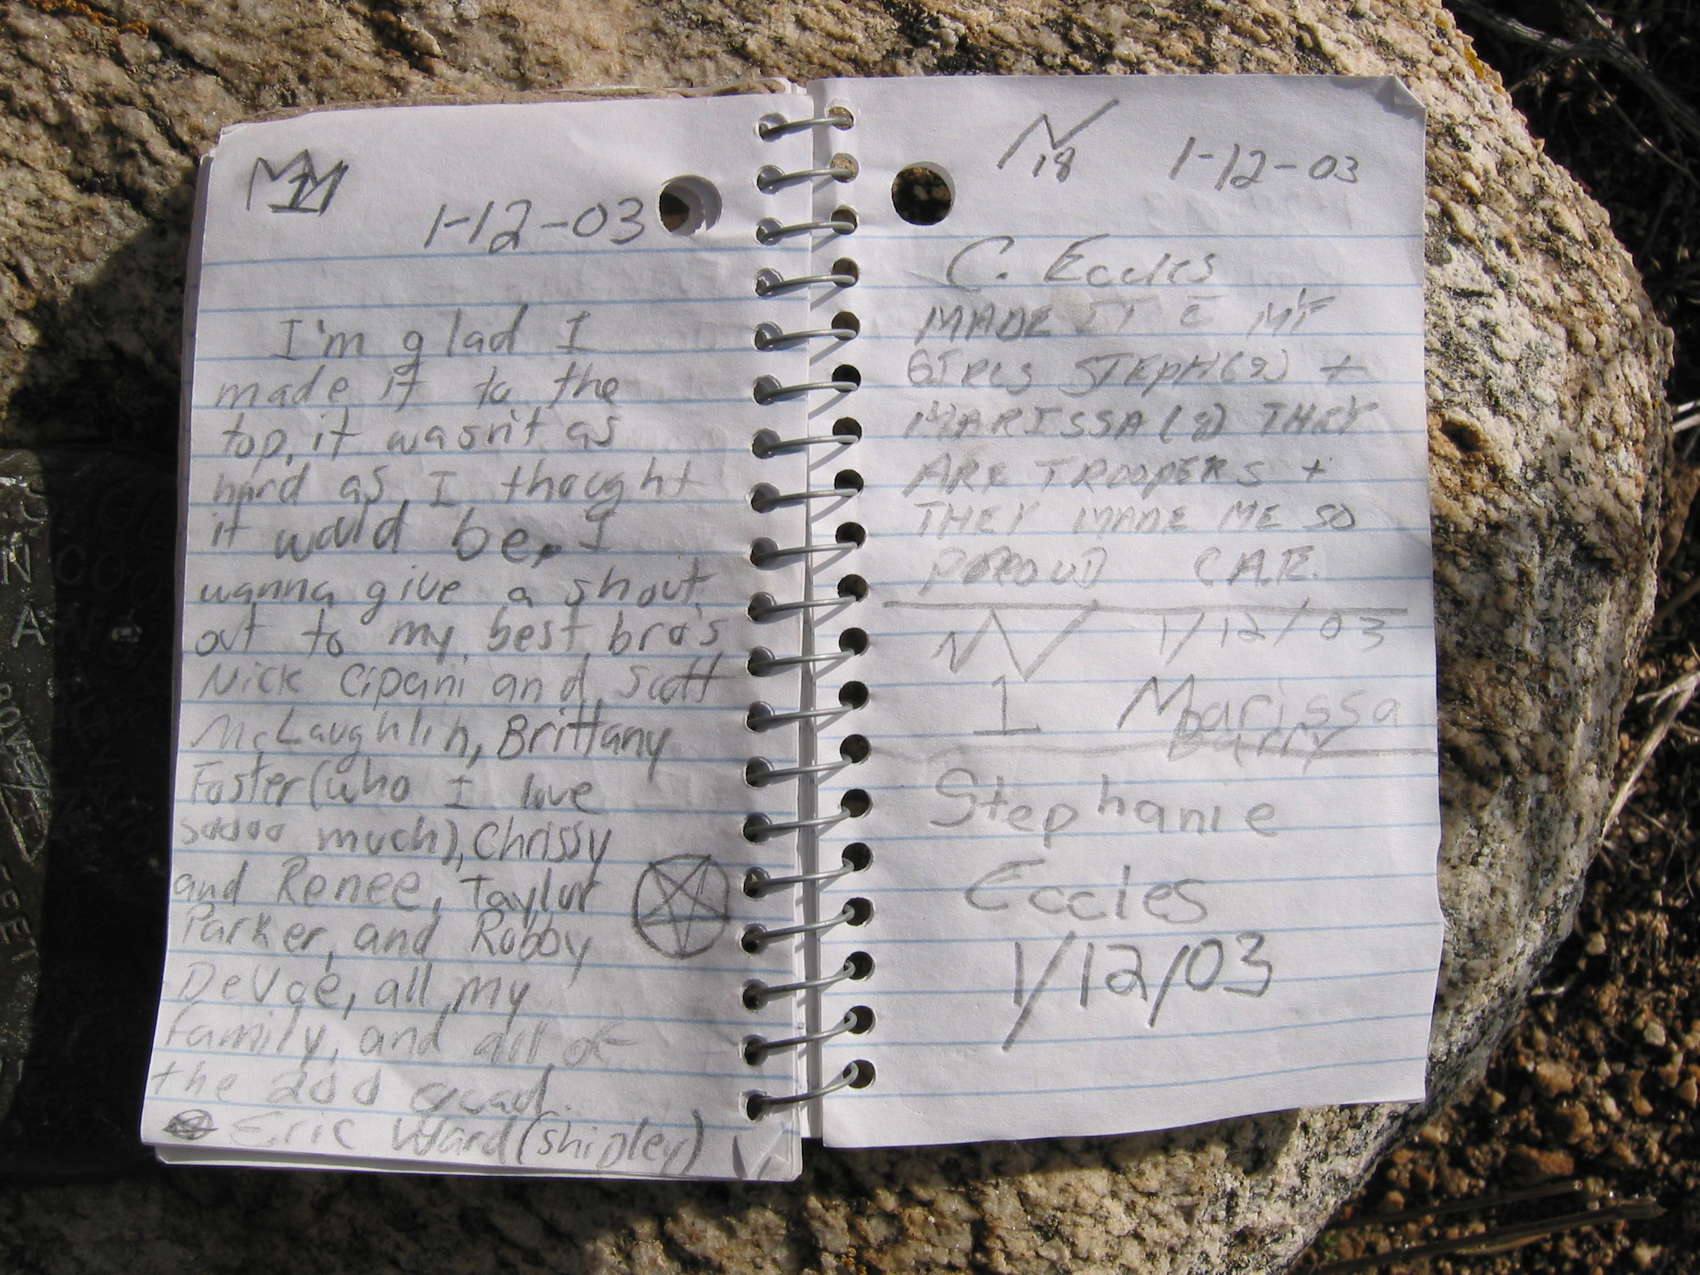 1-12-03
I'm glad I
made it to the
top, it wasn't as
hard as I thought
it would be, I
wanna give a shout
out to my best bro's
Nick Cipani and Scott
McLaughlin, Brittany
Foster (who I love
sooooo much), Chrissy
and Renee, Taylor
Parker, and Robby
DeVoe, all my
family, and all of
the
Eric Ward (shipley)
18 1-12-03
C. Eccles
MADE IT C MY
GIRLS STEPH (9) +
MARISSA (9) THEY
ARE TROOPERS +
THEY MADE ME SO
PROUD C.A.E.
1/12/03
1 Marissa
Barry
Stephanie
Eccles
1/12/03